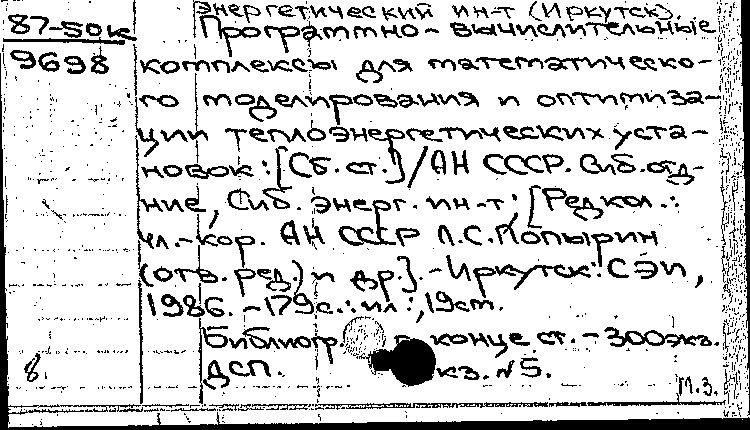 энергетический ин-т (Иркутск).
87-50к Программно-вычислительные
9698 комплексы для математическо-
го моделирования и оптимиза-
ции теплоэнергетических уста-
новок : [Сб. ст.] / АН СССР. Сиб. отд-
ние, Сиб. энерг. ин-т; [Редкол.:
чл.-кор. АН СССР Л.С. Попырин
(отв. ред.) и др.]. - Иркутск: СЭИ,
1986. - 179с.: ил.; 19см.
Библиогр. конце ст. - 300экз.
8. ДСП. кз. №5.
М.З.